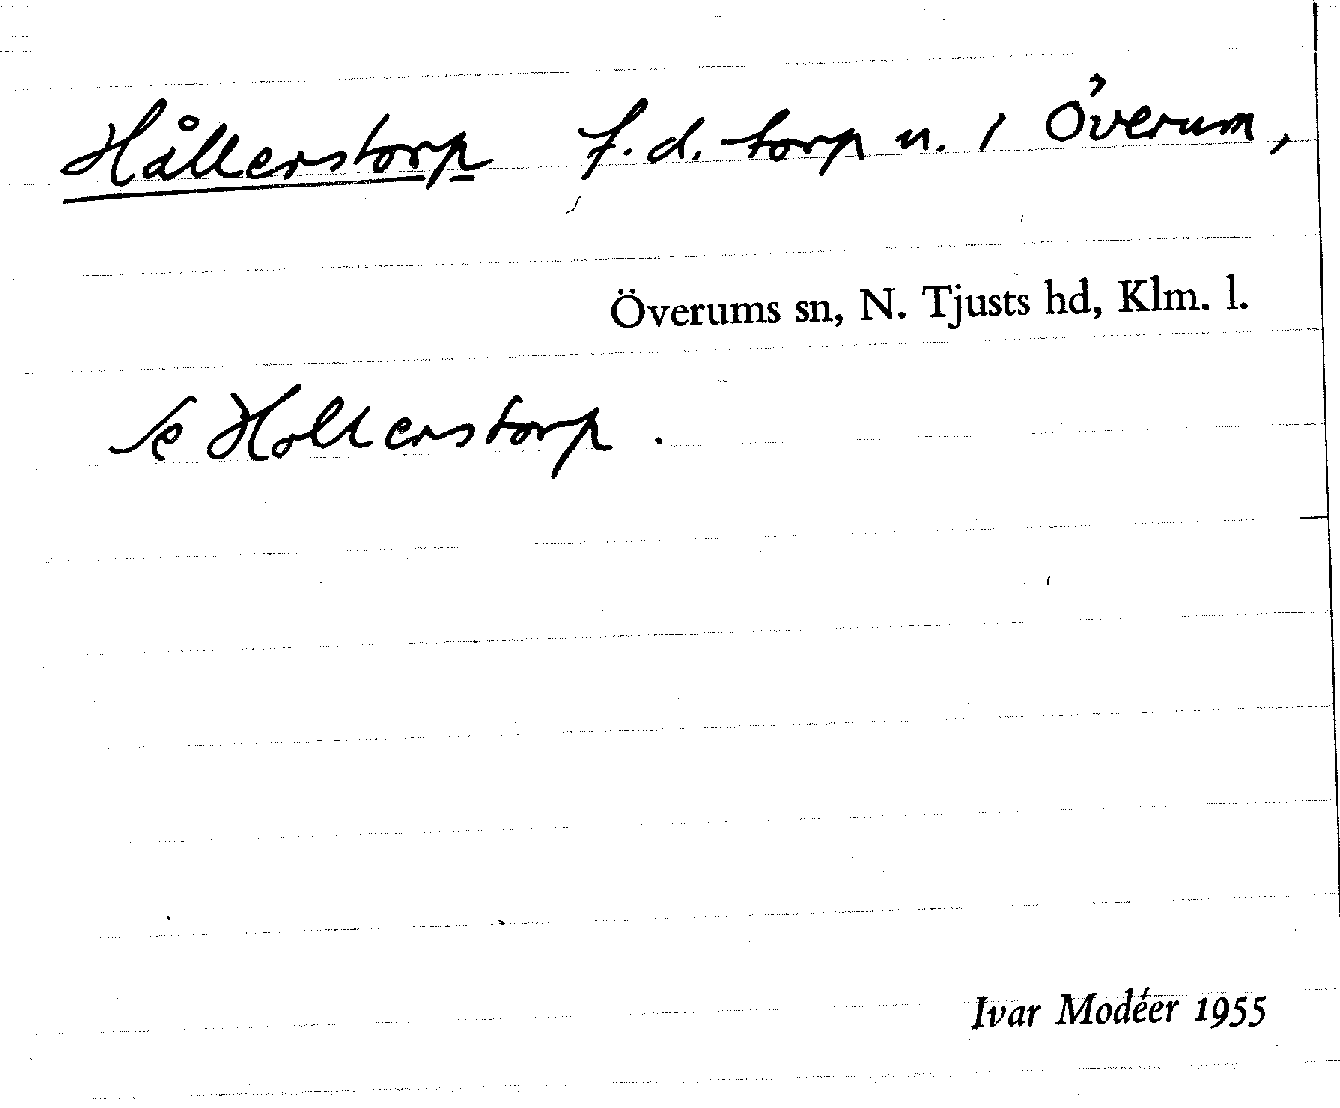 Hållerstorp f.d. torp u. / Överum,
Överums sn, N. Tjusts hd, Klm. l.
se Hollerstorp.
Ivar Modéer 1955